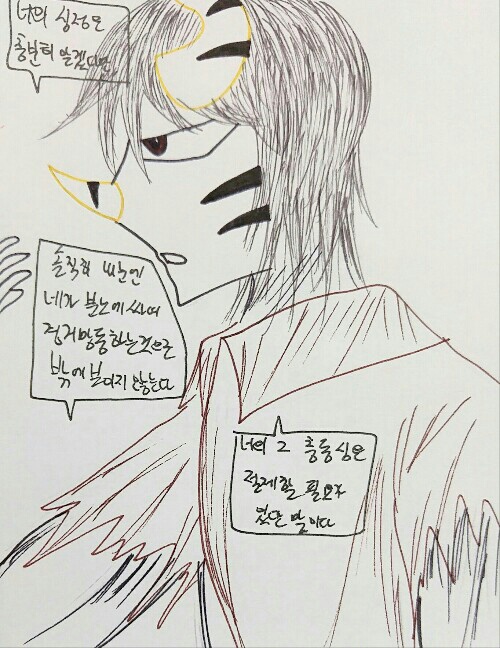 너의 심정은
충분히 알겠다만,
솔직히 내눈엔
네가 분노에 싸여
경거망동하는것으로
밖에 보이지 않는다
너의 그 충동심은
절제할 필요가
있단 말이다